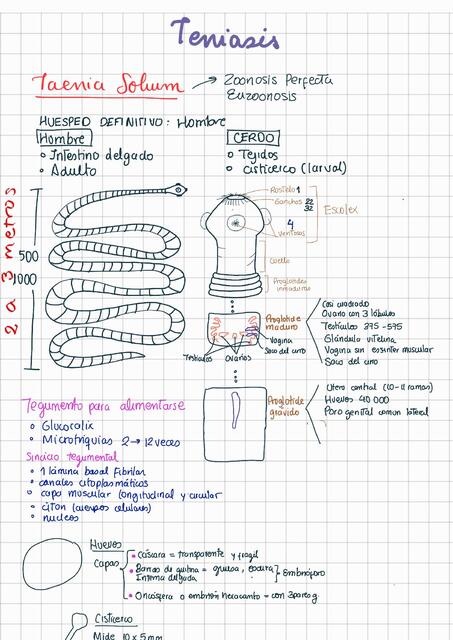 Teniasis
Taenia Solium → Zoonosis Perfecta
Euzoonosis
HUESPED DEFINITIVO: Hombre
Hombre
Intestino delgado
Adulto
CERDO
Tejidos
cisticerco (larval)
2 a 3 metros
500
1000
Rostelo 1
Ganchos 22
32
4
Ventosas
Escolex
Cuello
Proglotides
inmaduros
Proglotide
maduro
Vagina
Saco del cirro
Testiculos
Ovarios
Casi cuadrado
Ovario con 3 lobulos
Testiculos 375-575
Glándula vitelina
Vagina sin esfinter muscular
Saco del cirro
Proglotide
grávido
Utero central (10-11 ramas)
Huevos 40 000
Poro genital comun lateral
Tegumento para alimentarse
Glucocalix
Microtriquias 2 → 12 veces
Sincicio tegumental
1 lámina basal fibrilar
canales citoplasmáticos
capa muscular longitudinal y circular
citon (cuerpos celulares)
nucleos
Huevos
Capas
Cáscara = transparente y fragil
Barras de quitina = gruesa, oscura
Interna delgada
Embrióforo
Oncósfera o embrión hexacanto = con 3 pares g.
Cisticerco
Mide 10 x 5 mm